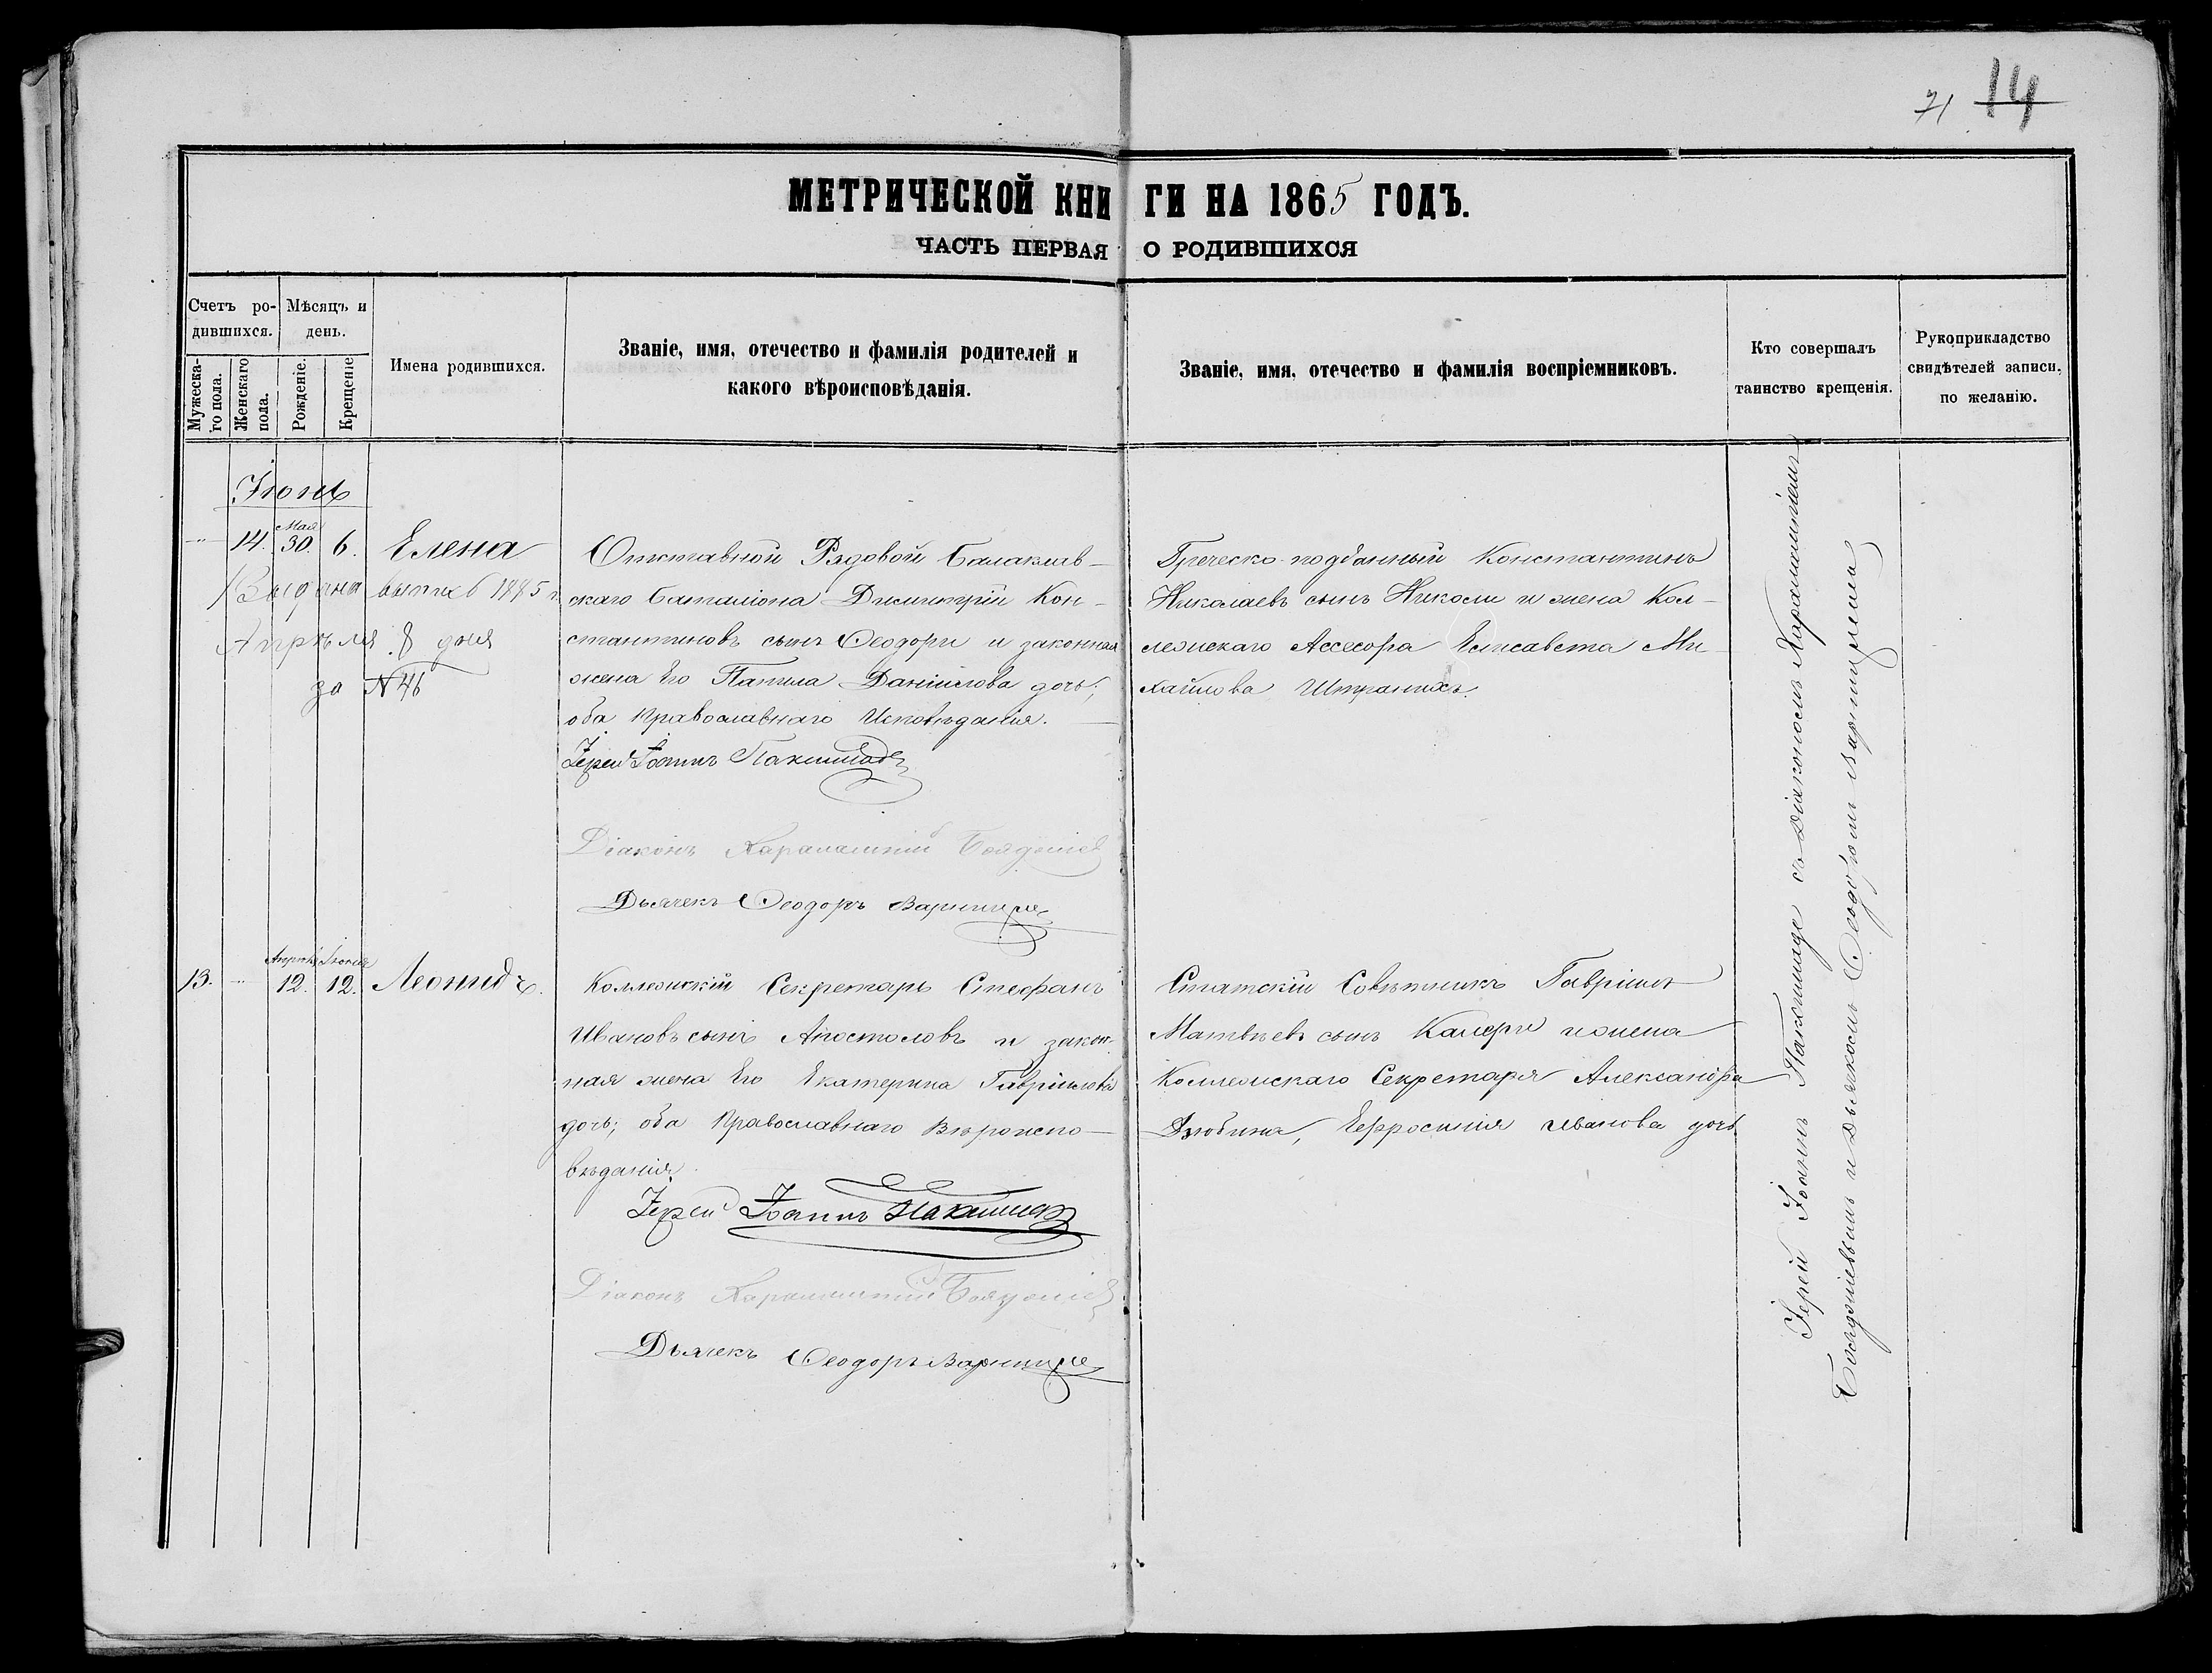 71 14
МЕТРИЧЕСКОЙ КНИГИ НА 1865 ГОДЪ.
ЧАСТЬ ПЕРВАЯ О РОДИВШИХСЯ
Счетъ ро-
дившихся.
Мѣсяцъ и
день.
Мужеска-
го пола.
Женскаго
пола.
Рожденіе.
Крещеніе
Имена родившихся.
Званіе, имя, отечество и фамилія родителей и
какого вѣроисповѣданія.
Званіе, имя, отечество и фамилія воспріемниковъ.
Кто совершалъ
таинство крещенія.
Рукоприкладство
свидѣтелей записи,
по желанію.
Іюнь
14. Мая 30. 6. Елена
Выдана выпись 1885 г.
Апрѣля 8 дня
за № 46
Отставной Рядовой Балаклав-
скаго Баталіона Димитрій Кон-
стантиновъ сынъ Ѳеодори и законная
жена Его Данііилова дочь;
оба Православнаго Исповѣданія.
Іерей Іоаннъ Паксимаде
Діаконъ Харалампій Бояджіев
Дьячекъ Ѳеодоръ
Греческо-подданный Константинъ
Николаевъ сынъ Николи и жена Кол-
лежскаго Ассесора Елисавета Ми-
хайлова
13. Апрѣля 12. Іюня 12. Леонидъ.
Коллежскій Секретарь Стефанъ
Ивановъ сынъ Апостоловъ и закон-
ная жена Его Екатерина Гавріилова
дочь; оба Православнаго Вѣроиспо-
вѣданія.
Іерей Іоаннъ Паксимаде
Діаконъ Харалампій Бояджіев
Дьячекъ Ѳеодоръ
Статскій Совѣтникъ Гавріилъ
Матвѣевъ сынъ и жена
Коллежскаго Секретаря Александра
Дзюбина, Ефросинія Иванова дочь
Іерей Іоаннъ Паксимаде съ Діакономъ Харалампіемъ
Бояджіевымъ и Дьячкомъ Ѳеодоромъ